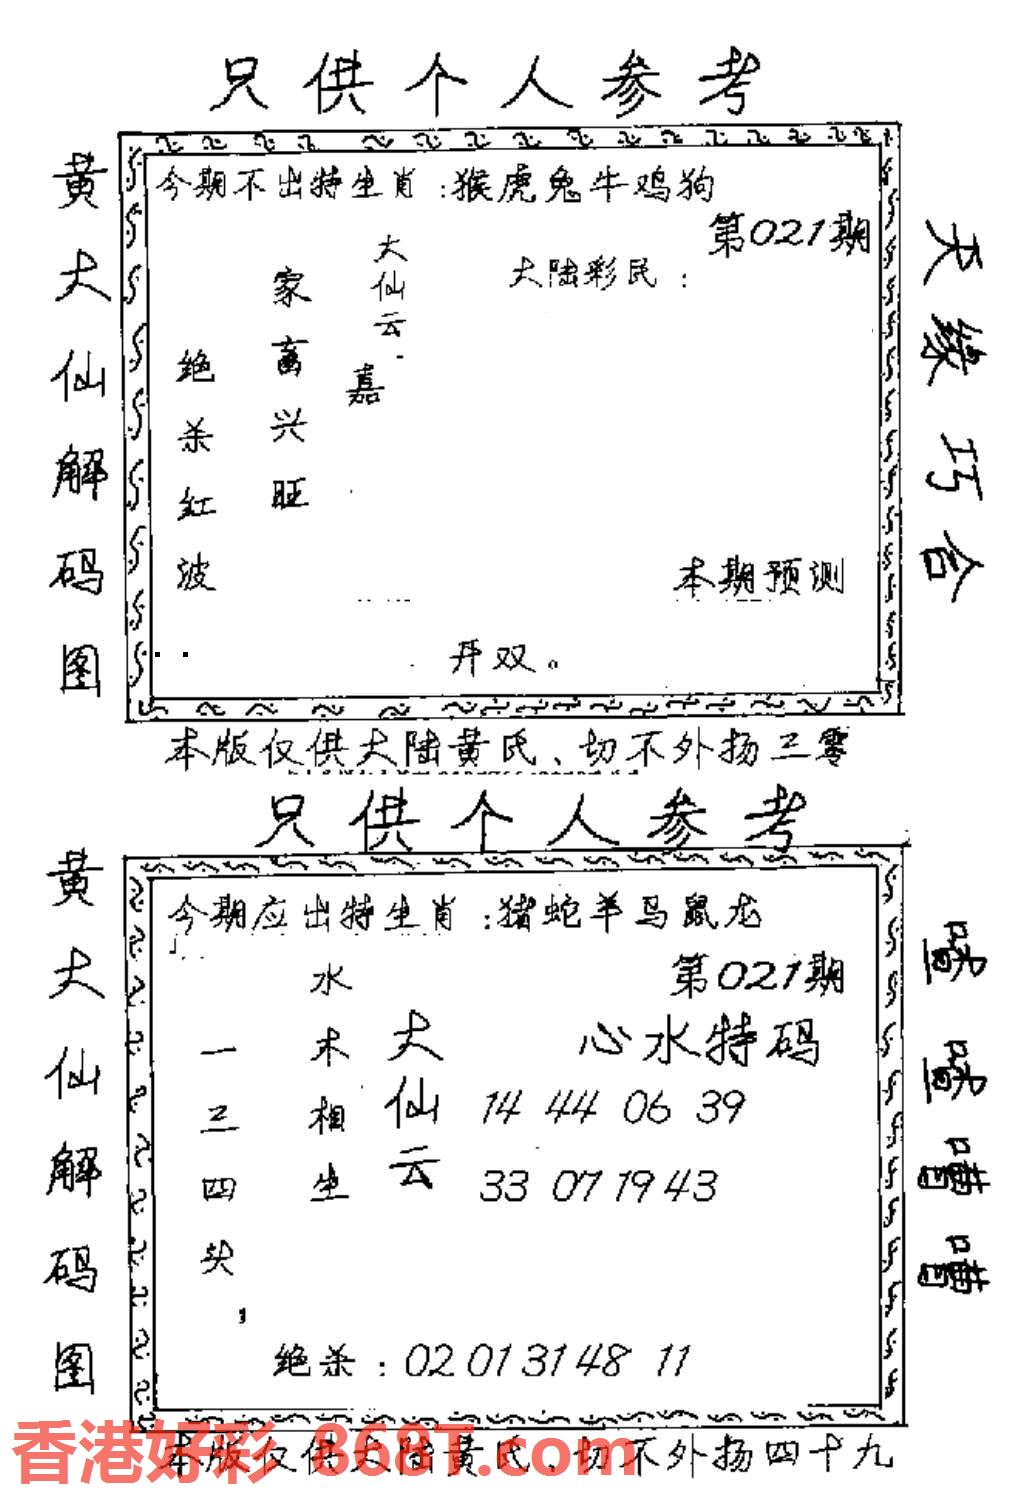 只供个人参考
黄大仙解码图
今期不出特生肖:猴虎兔牛鸡狗
第021期
大陆彩民:
大仙云.
嘉
家畜兴旺
绝杀红波
本期预测
开双。
天缘巧合
本版仅供大陆黄氏、切不外扬三零
只供个人参考
黄大仙解码图
今期应出特生肖:猪蛇羊马鼠龙
第021期
心水特码
大仙云
水木相生
一三四头,
14 44 06 39
33 07 19 43
绝杀:02 01 31 48 11
本版仅供大陆黄氏、切不外扬四十九
香港好彩-868T.com